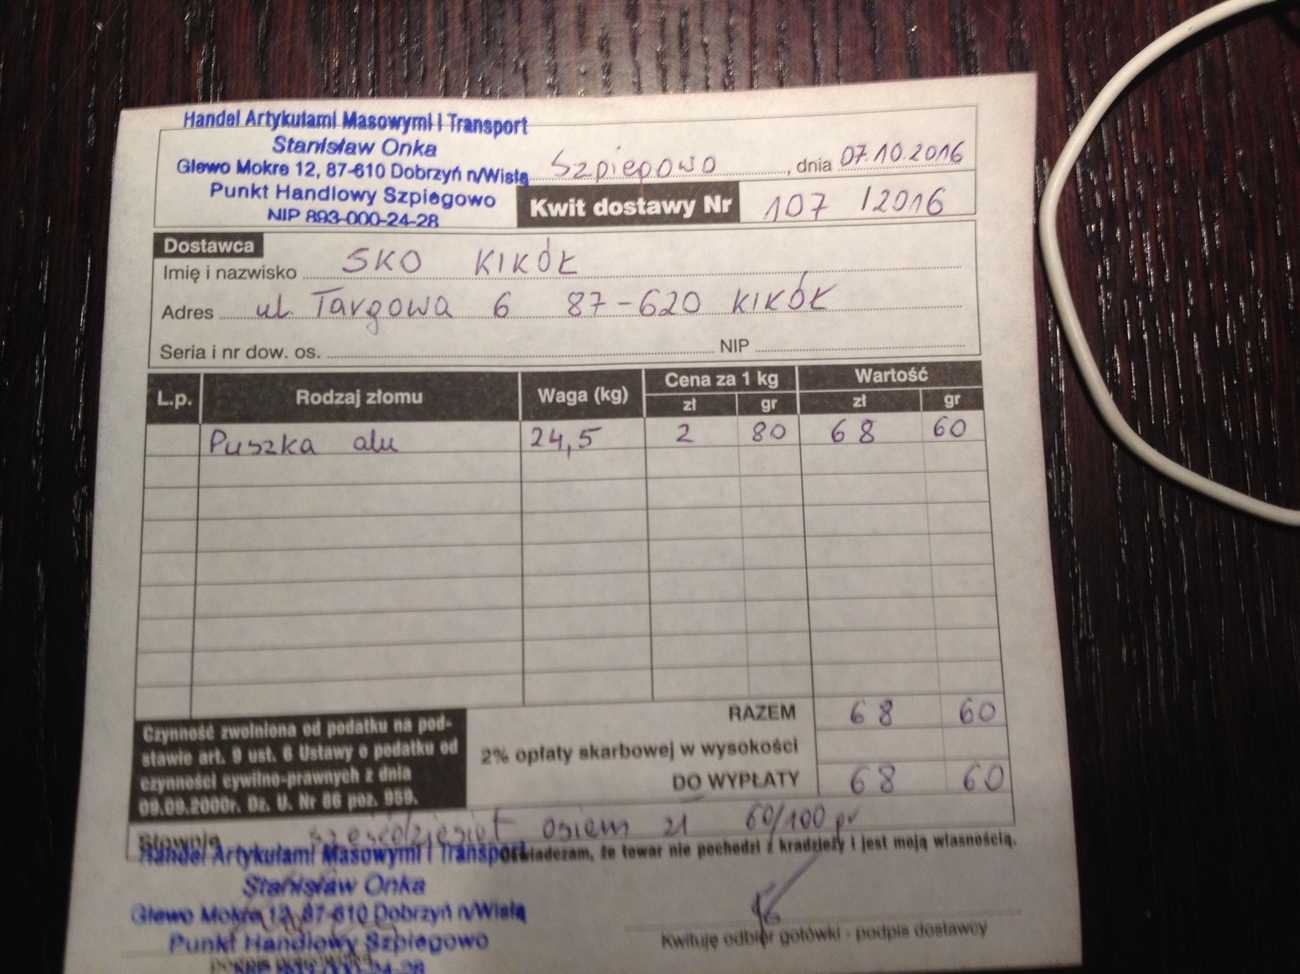 Handel Artykułami Masowymi i Transport
Stanisław Onka
Glewo Mokre 12, 87-610 Dobrzyń n/Wisłą
Punkt Handlowy Szpiegowo
NIP 893-000-24-28
Szpiegowo, dnia 07.10.2016
Kwit dostawy Nr 107 /2016
Dostawca
Imię i nazwisko SKO KIKÓŁ
Adres ul. Targowa 6 87-620 KIKÓŁ
Seria i nr dow. os. NIP
L.p. Rodzaj złomu Waga (kg) Cena za 1 kg Wartość
zł gr zł gr
Puszka alu 24,5 2 80 68 60
RAZEM 68 60
2% opłaty skarbowej w wysokości
DO WYPŁATY 68 60
Czynność zwolniona od podatku na pod-
stawie art. 9 ust. 6 Ustawy o podatku od
czynności cywilno-prawnych z dnia
09.09.2000r. Dz. U. Nr 86 poz. 959.
Słownie sześćdziesiąt osiem zł 60/100 gr
Oświadczam, że towar nie pochodzi z kradzieży i jest moją własnością.
Handel Artykułami Masowymi i Transport
Stanisław Onka
Glewo Mokre 12, 87-610 Dobrzyń n/Wisłą
Punkt Handlowy Szpiegowo
NIP 893-000-24-28
Kwituję odbiór gotówki - podpis dostawcy